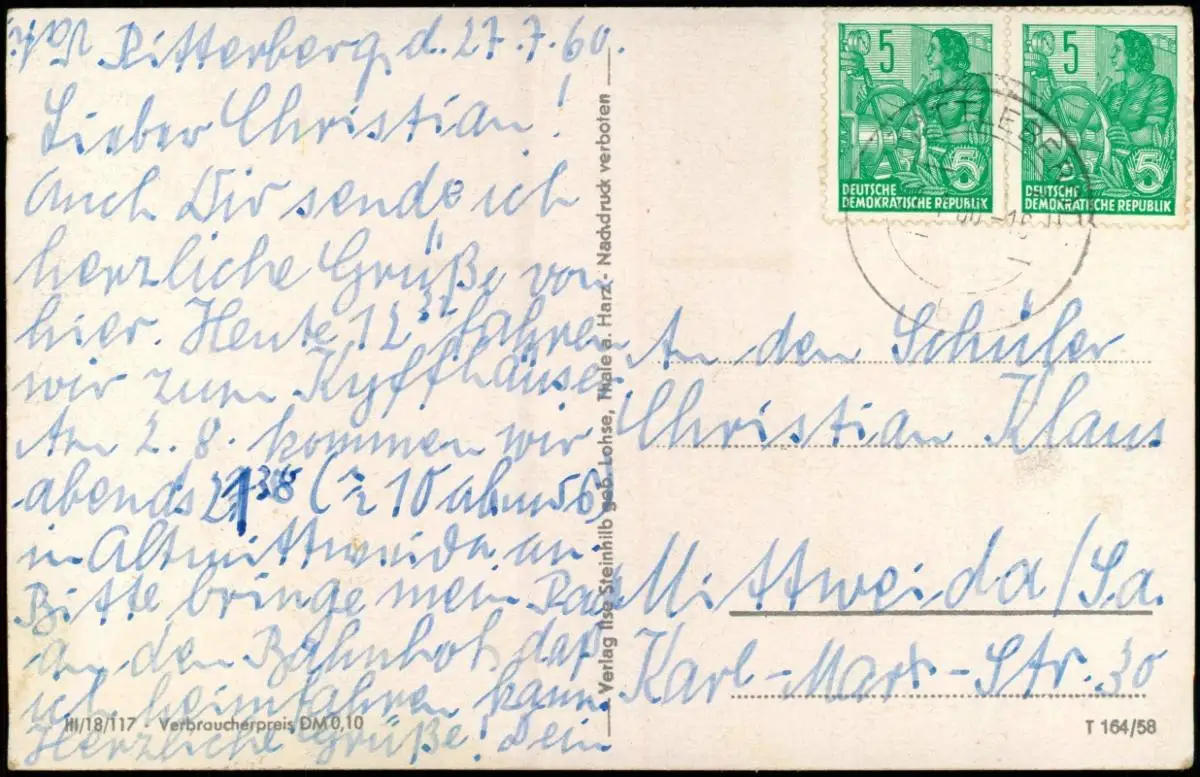 Ritterberg, d. 27.7.60.
Lieber Christian!
Auch Dir sende ich
herzliche Grüße von
hier. Heute 12 fahren
wir zum Kyffhäuser
Am 2.8. kommen wir
abends 21 38 (≈ 10 abends)
in Altmittweida an.
Bitte bringe mein Rad
an den Bahnhof, daß
ich heimfahren kann.
Herzliche Grüße! Dein
III/18/117 · Verbraucherpreis DM 0,10
Verlag Ilse Steinhilb geb. Lohse, Thale a. Harz - Nachdruck verboten
5 5
DEUTSCHE
DEMOKRATISCHE REPUBLIK
5 5
DEUTSCHE
DEMOKRATISCHE REPUBLIK
An den Schüler
Christian Klaus
Mittweida/Sa.
Karl-Marx-Str. 30
T 164/58